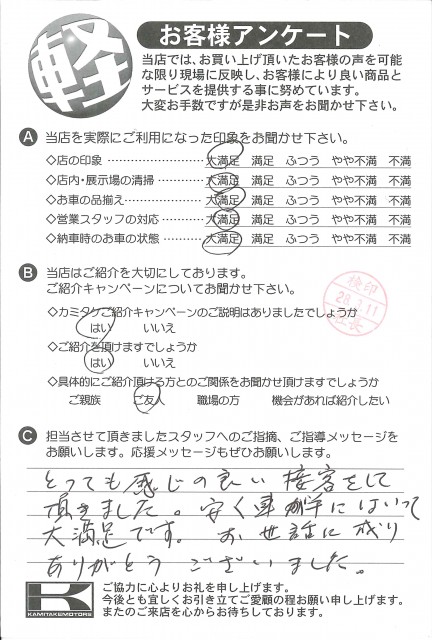 軽
お客様アンケート
当店では、お買い上げ頂いたお客様の声を可能
な限り現場に反映し、お客様により良い商品と
サービスを提供する事に努めています。
大変お手数ですが是非お声をお聞かせ下さい。
A 当店を実際にご利用になった印象をお聞かせ下さい。
◇店の印象 ………………… 大満足 満足 ふつう やや不満 不満
◇店内・展示場の清掃 ………… 大満足 満足 ふつう やや不満 不満
◇お車の品揃え……………… 大満足 満足 ふつう やや不満 不満
◇営業スタッフの対応 ………… 大満足 満足 ふつう やや不満 不満
◇納車時のお車の状態 ………… 大満足 満足 ふつう やや不満 不満
B 当店はご紹介を大切にしております。
ご紹介キャンペーンについてお聞かせ下さい。
◇カミタケご紹介キャンペーンのご説明はありましたでしょうか
はい いいえ
◇ご紹介を頂けますでしょうか
はい いいえ
◇具体的にご紹介頂ける方とのご関係をお聞かせ頂けますでしょうか
ご親族 ご友人 職場の方 機会があれば紹介したい
検印
社長
C 担当させて頂きましたスタッフへのご指摘、ご指導メッセージを
お願いします。応援メッセージもぜひお願いします。
とっても感じの良い接客をして
頂きました。安く車が手にはいって
大満足です。お世話に成り
ありがとうございました。
K
KAMITAKEMOTORS
ご協力に心よりお礼を申し上げます。
今後とも宜しくお引き立てご愛顧の程お願い申し上げます。
またのご来店を心からお待ちしております。